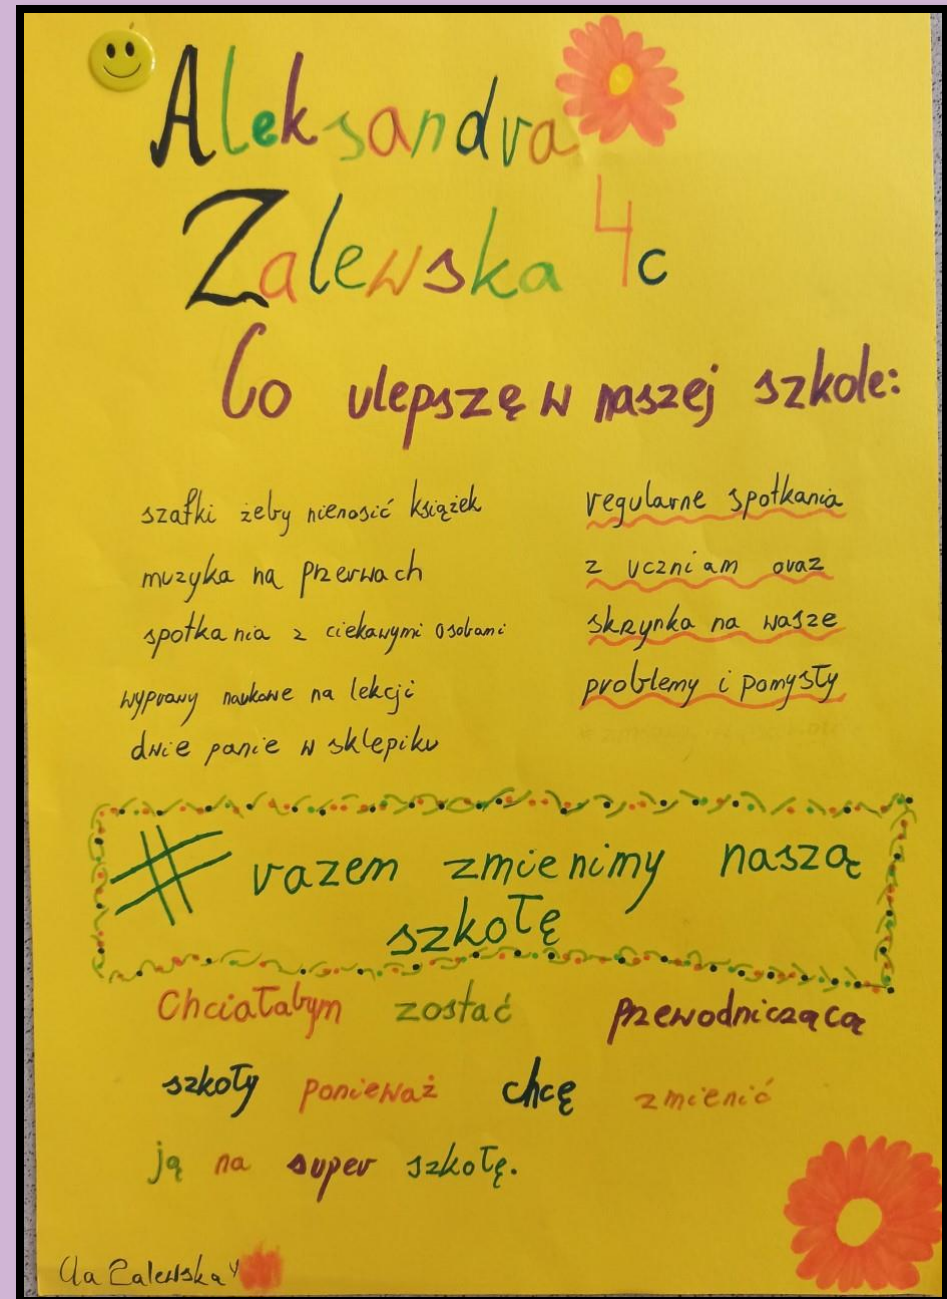 Aleksandra
Zalewska 4c
Co ulepszę w naszej szkole:
szafki żeby nienosić książek
muzyka na przerwach
spotkania z ciekawymi osobami
wyprawy naukowe na lekcji
dwie panie w sklepiku
regularne spotkania
z uczniam oraz
skrzynka na wasze
problemy i pomysły
# razem zmienimy naszą
szkołę
Chciałabym zostać przewodniczącą
szkoły ponieważ chcę zmienić
ją na super szkołę.
Ola Zalewska